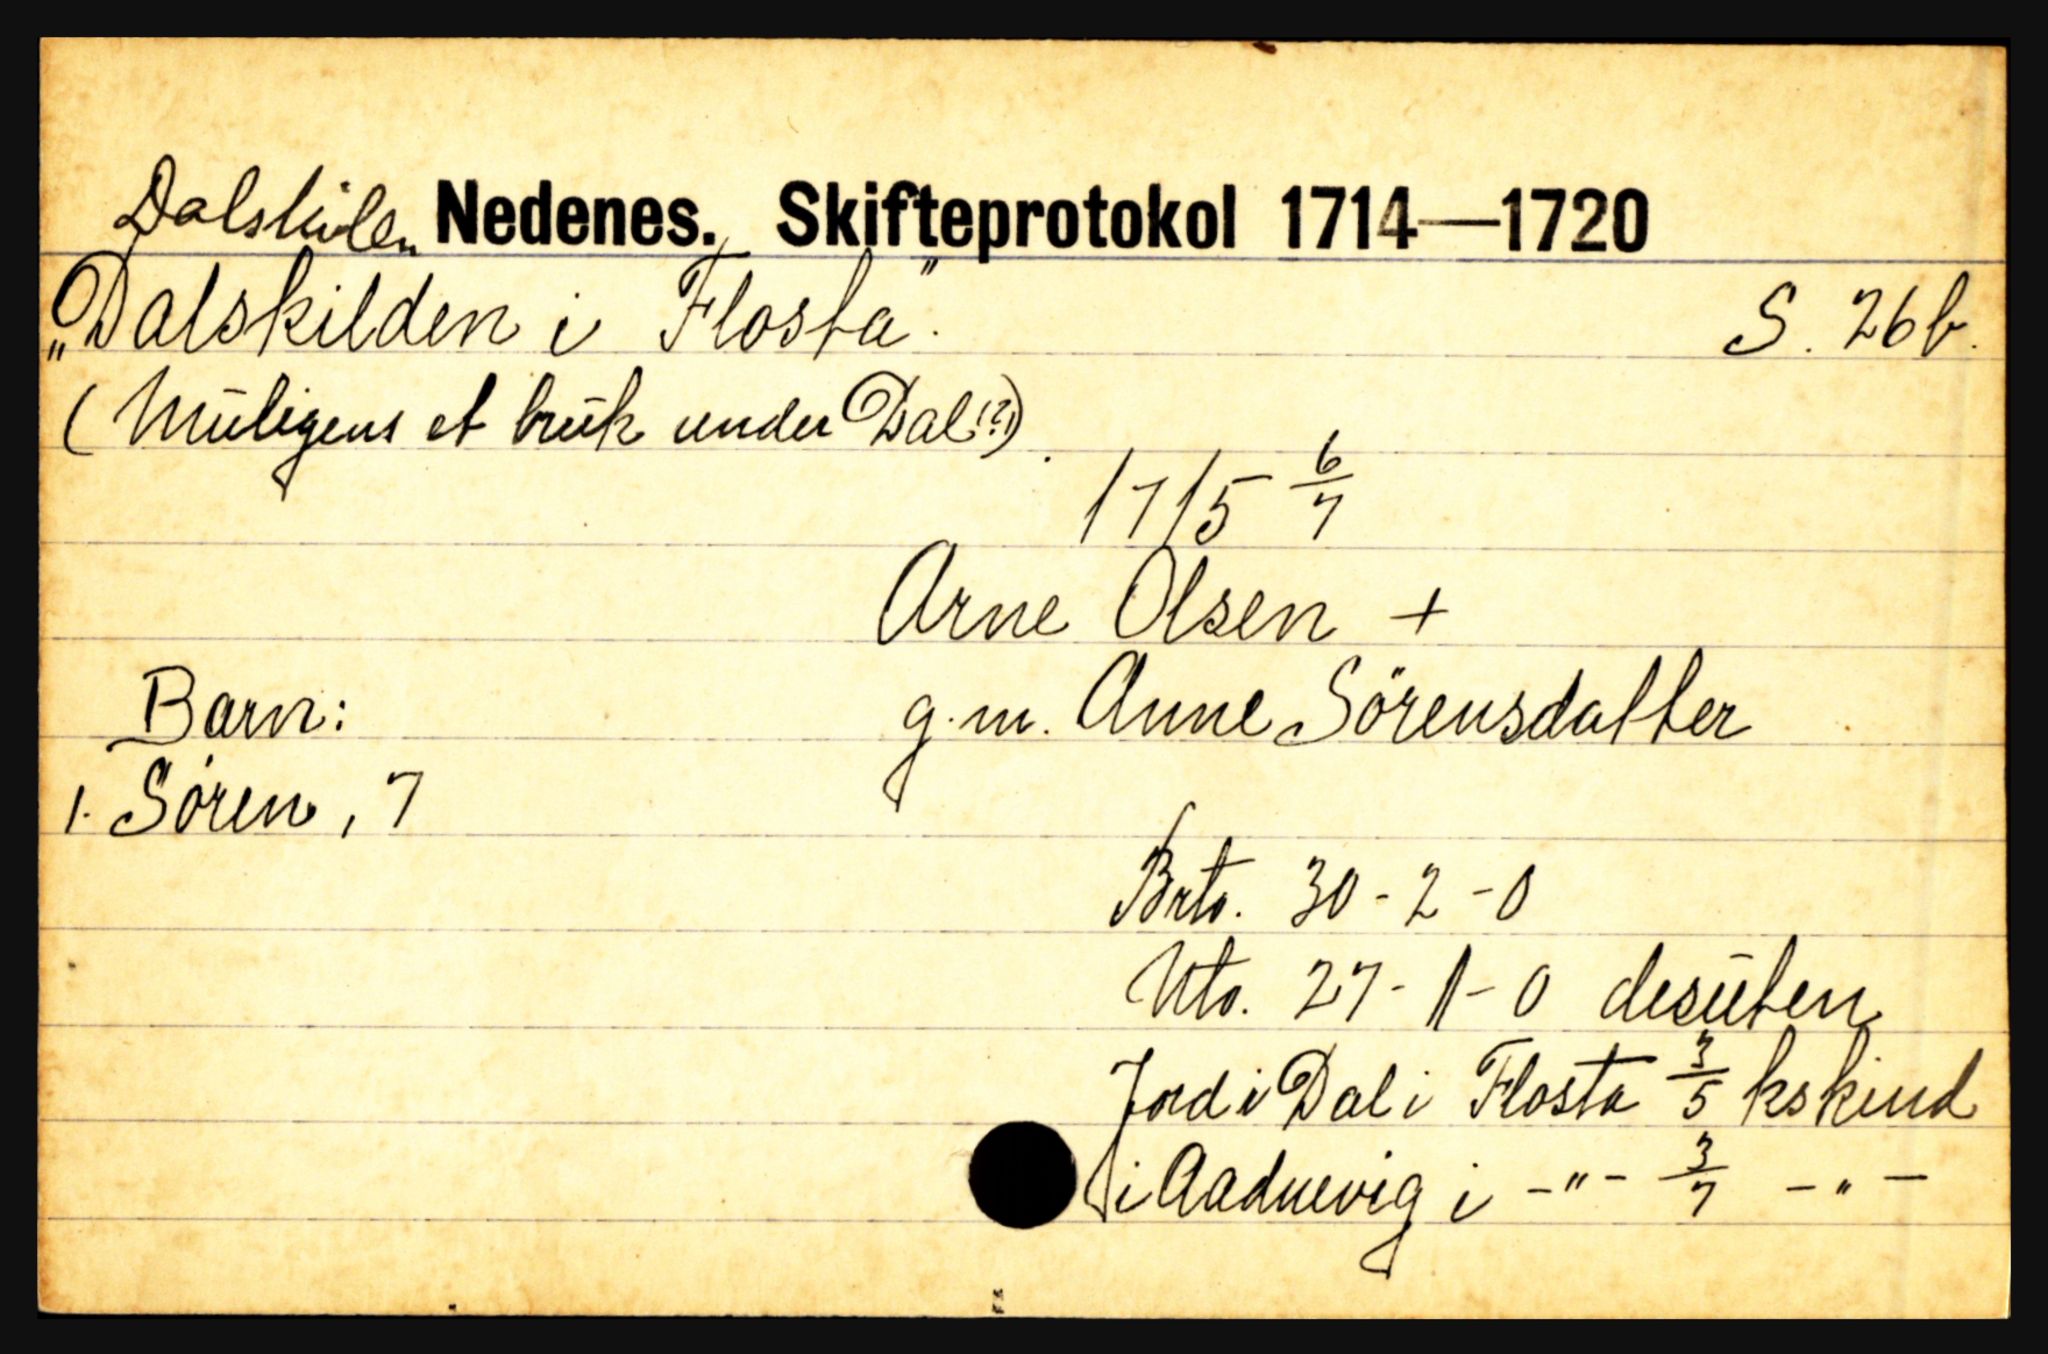 Dalskilen Nedenes. Skifteprotokol 1714—1720
„Dalskilden i Flosta". S. 26b.
(Muligens et bruk under Dal(?))
1715 6/7
Arne Olsen +
Barn: g.m. Anne Sörensdatter
1. Sören, 7
Brto. 30-2-0
Nto. 27-1-0 desuten
Jord i Dal i Flosta 3/5 kskind
i Aadnevig i -"- 3/7 -"-